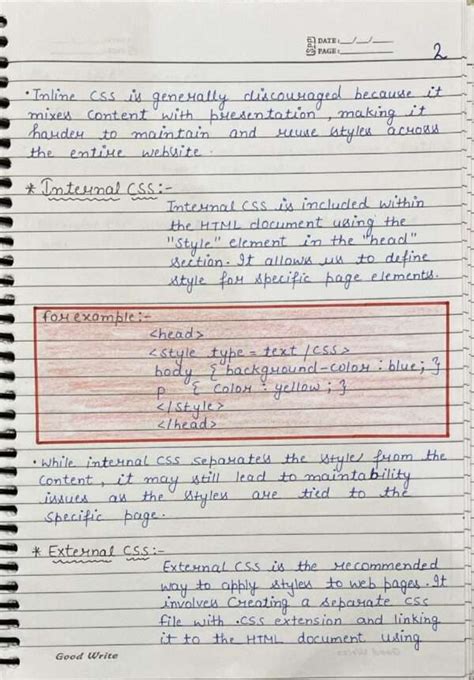 DATE: __/__/__
PAGE: ______
2
• Inline CSS is generally discouraged because it
mixes content with presentation, making it
harder to maintain and reuse styles across
the entire website.
* Internal CSS:-
Internal CSS is included within
the HTML document using the
"style" element in the "head"
section. It allows us to define
style for specific page elements.
for example:-
<head>
<style type = text /css>
body { background-color : blue; }
p { color : yellow ; }
</style>
</head>
• While internal CSS separates the styles from the
content, it may still lead to maintability
issues as the styles are tied to the
specific page.
* External CSS:-
External CSS is the recommended
way to apply styles to web pages. It
involves creating a separate css
file with .css extension and linking
it to the HTML document using
Good Write